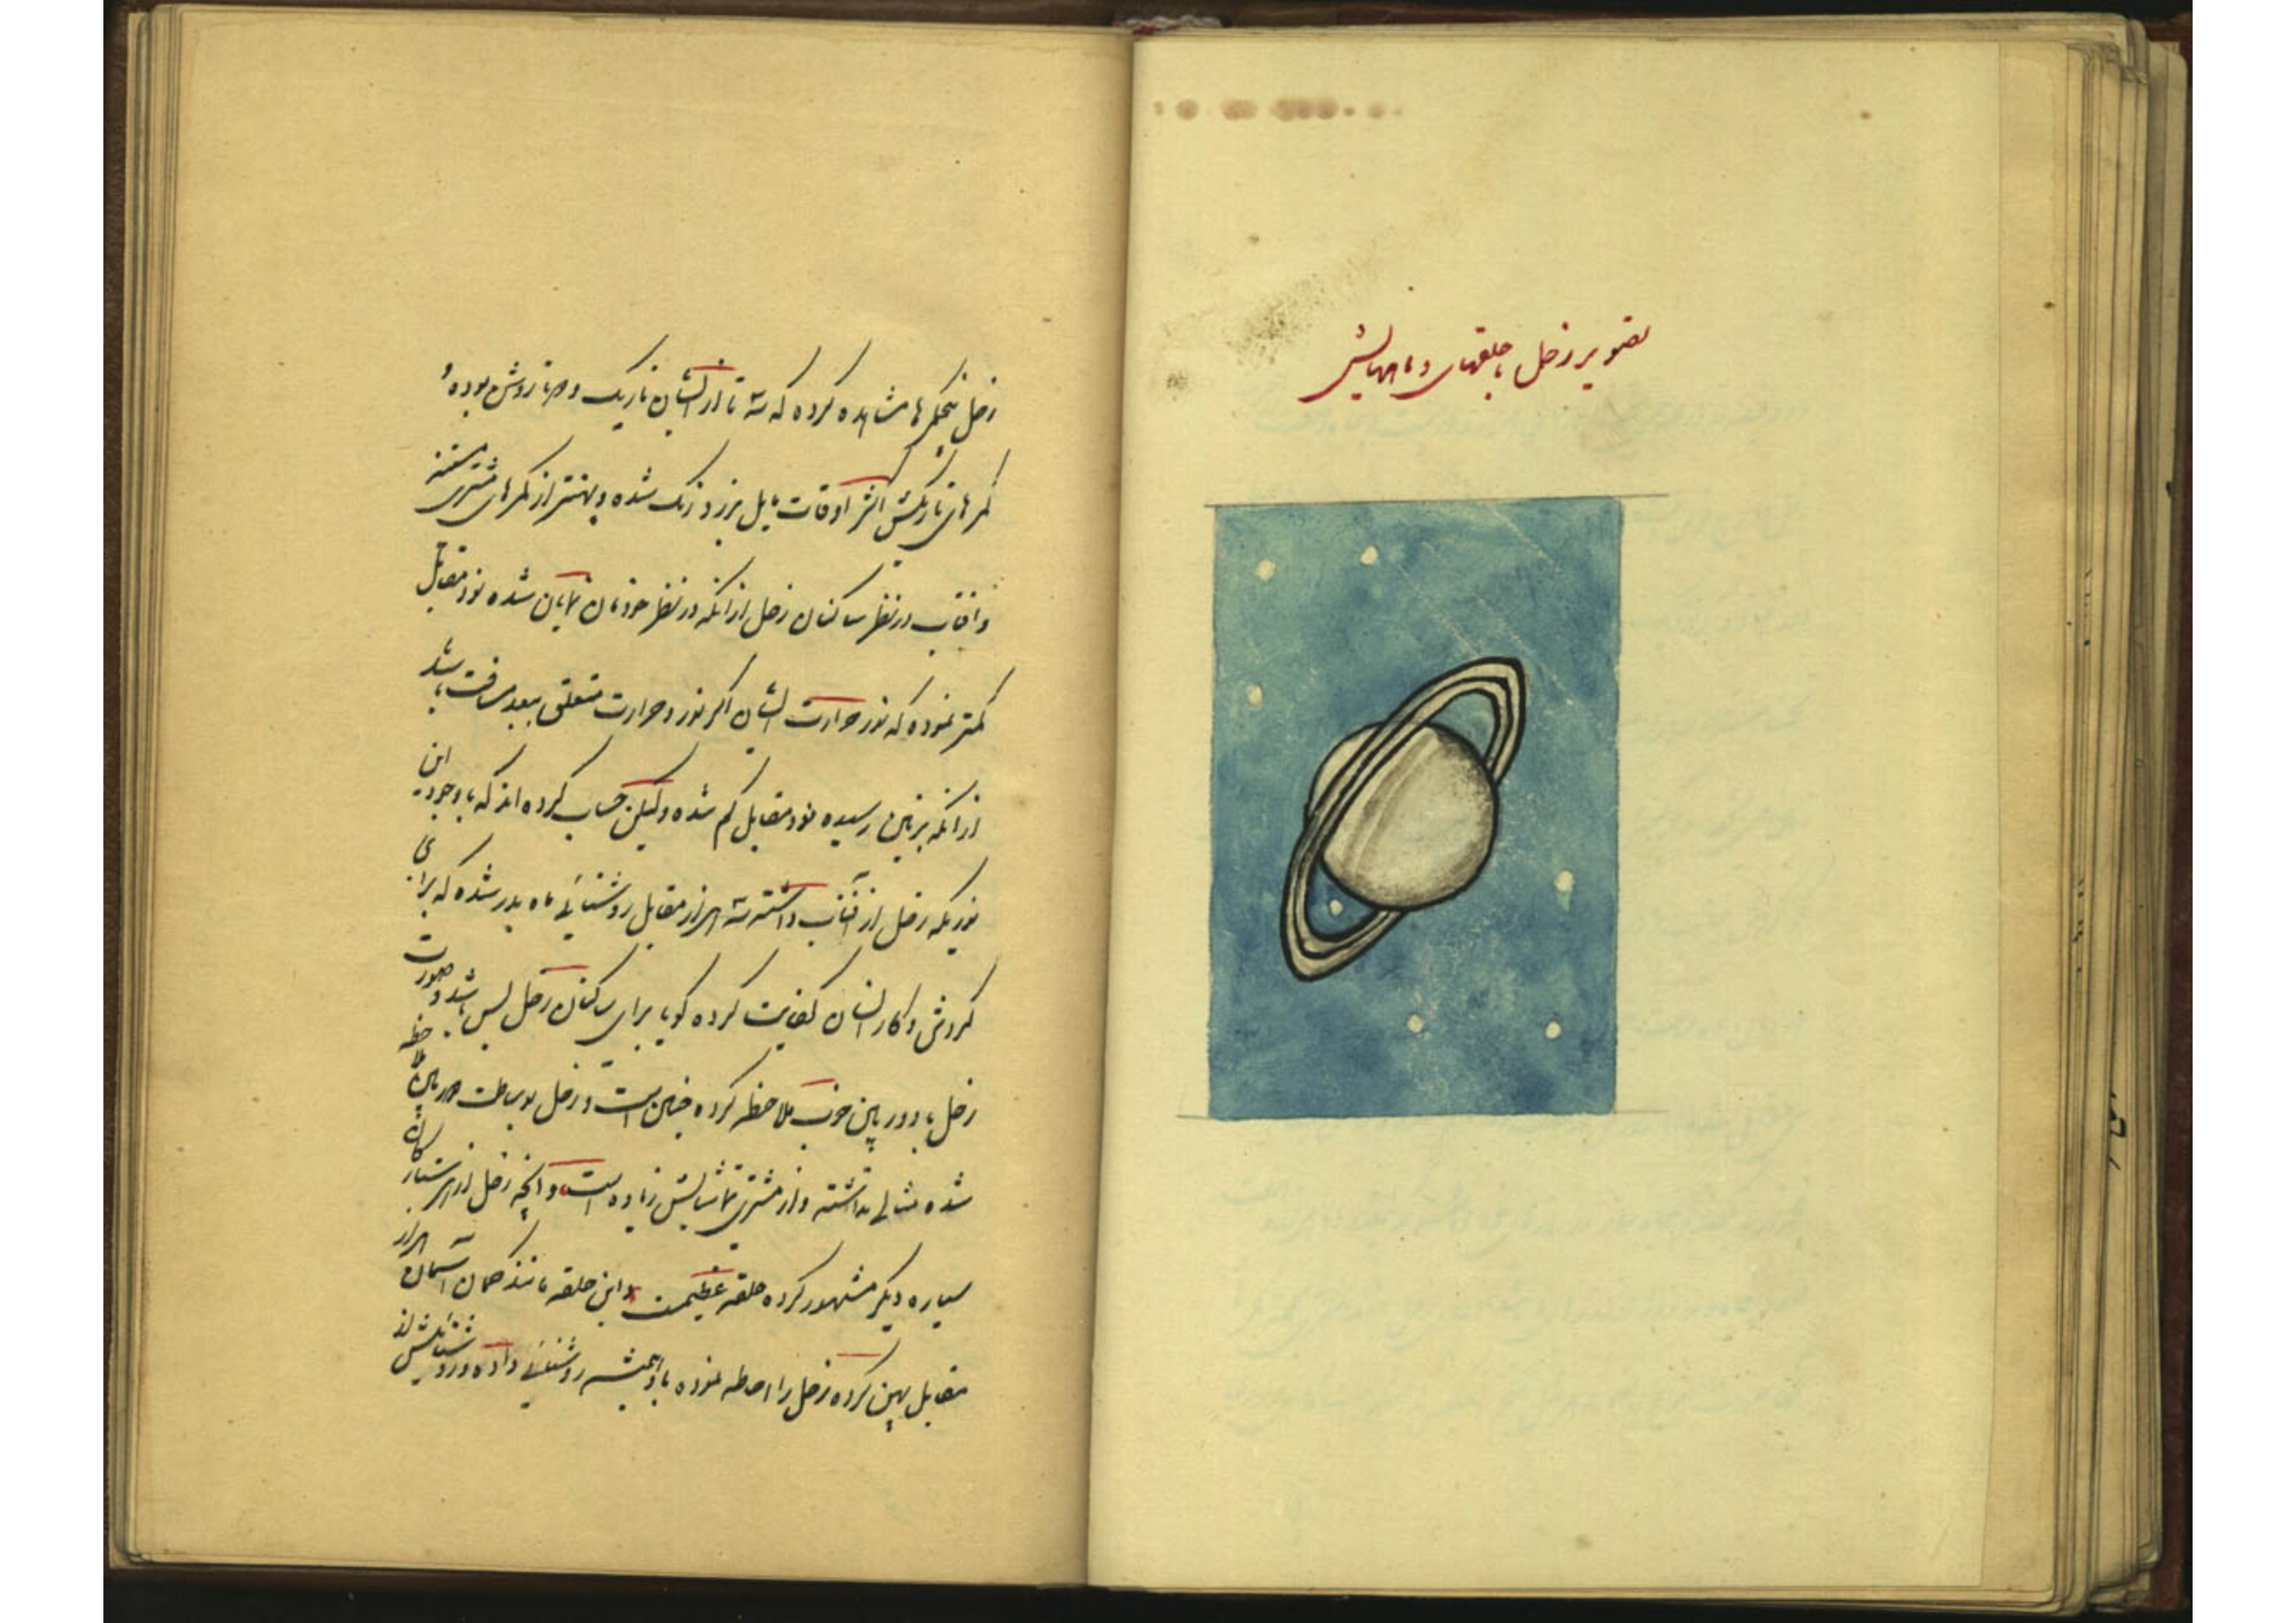 تصویر زحل با حلقهای و ماههایش
زحل پنج کمرها مشاهده کرده که سه تا از ایشان تاریک و دو تا روشن بوده و
کمرهای تاریکش اکثر اوقات مایل بزرد رنک شده و پهنتر از کمرهای مشتری هستند
و افتاب در نظر ساکنان زحل از انکه در نظر خودمان نمایان شده نود مقابل
کمتر نموده که نور حرارت ایشان اکر نور و حرارت متعلق ببعد مسافت باشد
از انکه بزمین رسیده نود مقابل کم شده ولیکن حساب کرده اند که با وجود این
نوریکه زحل از آفتاب داشته سه هزار مقابل روشنائی ماه بدر شده که برای
کردش و کار انسان کفایت کرده کویا برای ساکنان زحل بس باشد و صورت
زحل با دوربین خوب ملاحظه کرده چنین است و زحل بوساطت دوربین ملاحظه
شده مثالی نداشته و از مشتری تماشایش زیاده است و آنچه زحل از هر ستارکان
سیاره دیکر مشهور کرده حلقه عظیمست و این حلقه مانند کمان آسمان سه هزار
مقابل پهن کرده زحل را احاطه نموده باو همیشه روشنائی داده و روشنائیش از